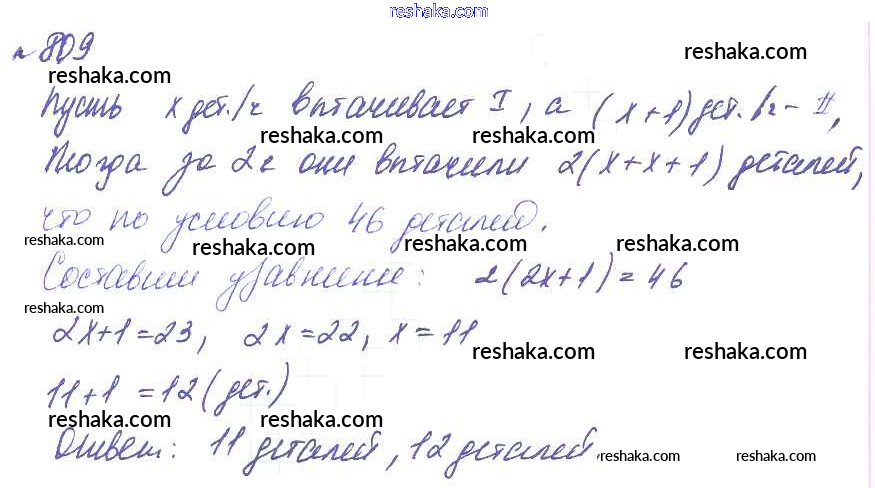 reshaka.com
№ 809
reshaka.com reshaka.com
Пусть х дет./ч вытачивает I, а (х+1) дет./ч – II,
reshaka.com reshaka.com reshaka.com
Тогда за 2ч они выточили 2(х+х+1) деталей,
reshaka.com reshaka.com reshaka.com
что по условию 46 деталей.
reshaka.com reshaka.com reshaka.com reshaka.com
Составим уравнение: 2(2х+1)=46
reshaka.com
2х+1=23, 2х=22, х=11
reshaka.com reshaka.com
11+1=12(дет.)
reshaka.com reshaka.com reshaka.com
Ответ: 11 деталей, 12 деталей
reshaka.com reshaka.com